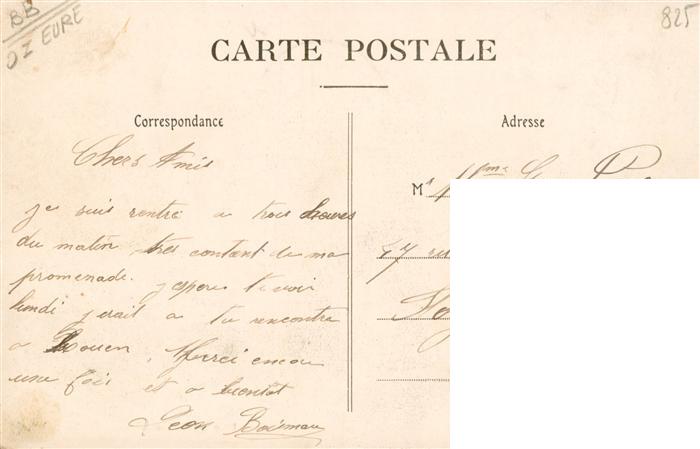 BB
OZ EURE
825
CARTE POSTALE
Correspondance
Adresse
Chers Amis
je suis rentré a trois heures
du matin tres contant de ma
promenade. j'espere te voir
lundi j'irait a ta rencontre
a Rouen, Merci encore
une fois et a bientot
Leon
M
47 ru